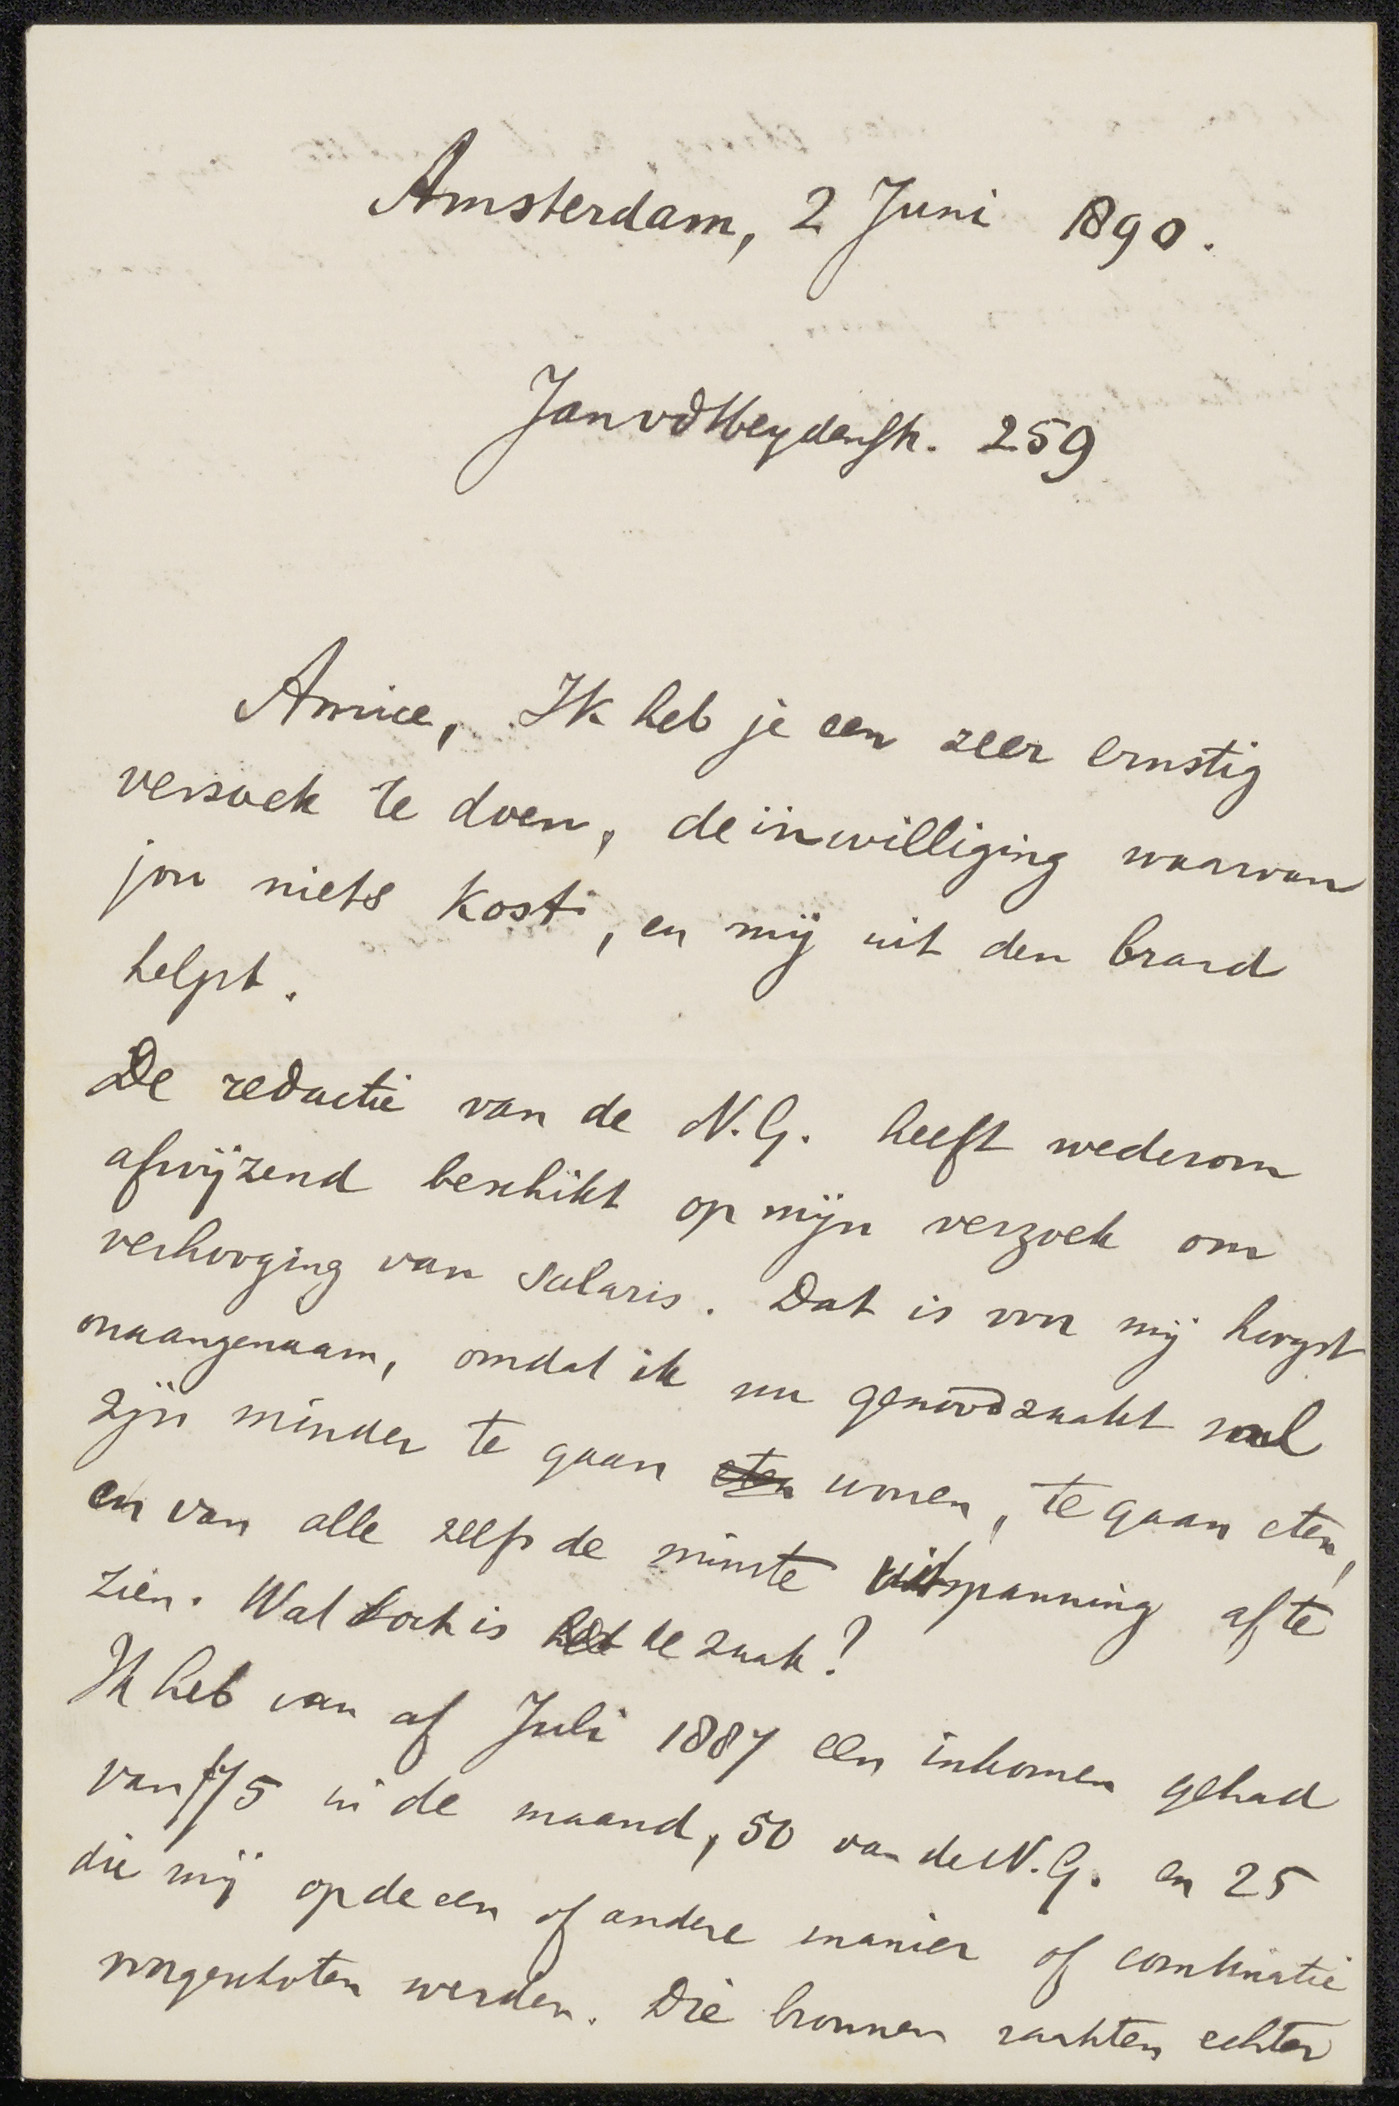 Amsterdam, 2 Juni 1890.
Jan vd Heydenstr. 259
Amice, Ik heb je een zeer ernstig
versoek te doen, de inwilliging waarvan
jou niets kost, en mij uit den brand
helpt.
De redactie van de N.G. heeft wederom
afwijzend beschikt op mijn verzoek om
verhooging van salaris. Dat is voor mij hoogst
onaangenaam, omdat ik nu genoodzaakt zal
zijn minder te gaan eten wonen, te gaan eten,
en van alle zelfs de minste uitspanning af te
zien. Wat toch is de zaak?
Ik heb van af Juli 1887 een inkomen gehad
van f75 in de maand, 50 van de N.G. en 25
die mij op de een of andere manier of combinatie
voorgeschoten werden. Die bronnen raakten echter